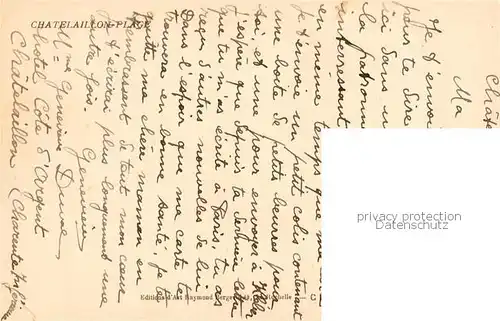 CHATELAILLON-PLAGE
Châte
Ma
Je t'envoi
pour te dire
ici dans un
la patronne
interressant
en même temps que ma
Je t'envoie un petit colis contenant
une boîte de petits beurres pour
toi et une pour envoyer à
J'espère que depuis ta dernière lettre
que tu m'as écrite à Paris, tu as
reçu d'autres nouvelles de lui
Dans l'espoir que ma carte te
trouvera en bonne santé, je te
quitte ma chère maman en
t'embrassant de tout mon cœur
et t'écrirai plus longuement une
autre fois. Geneviève
Mme Geneviève
Hôtel Côte d'Argent
Châtelaillon (Charente Inf
Editions d'Art Raymond Bergevin, La Rochelle
privacy protection
privacy protection